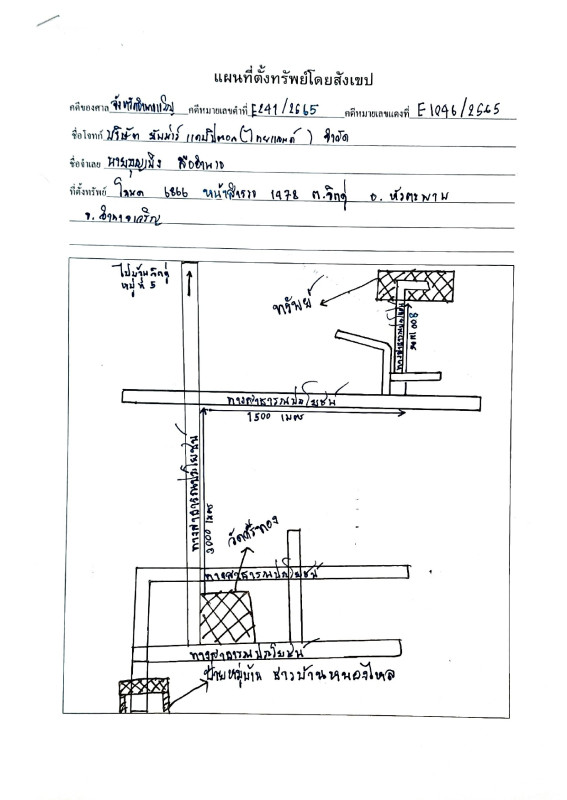 แผนที่ตั้งทรัพย์โดยสังเขป
คดีของศาล จังหวัดอำนาจเจริญ คดีหมายเลขดำที่ E241/2565 คดีหมายเลขแดงที่ E1046/2565
ชื่อโจทก์ บริษัท ยันม่าร์ แคปปิตอล (ไทยแลนด์) จำกัด
ชื่อจำเลย นายบุญเพ็ง
ที่ตั้งทรัพย์ โฉนด 6866 หน้าสำรวจ 1478 ต.จิกดู่ อ.หัวตะพาน
จ.อำนาจเจริญ
ไปบ้านจิกดู่
หมู่ที่ 5
ทรัพย์
800 เมตร
ทางสาธารณประโยชน์
ทางสาธารณประโยชน์
1500 เมตร
ทางสาธารณประโยชน์
3000 เมตร
วัดศรีทอง
ทางสาธารณประโยชน์
ทางสาธารณประโยชน์
ป้ายหมู่บ้าน ชาวบ้านหนองไหล